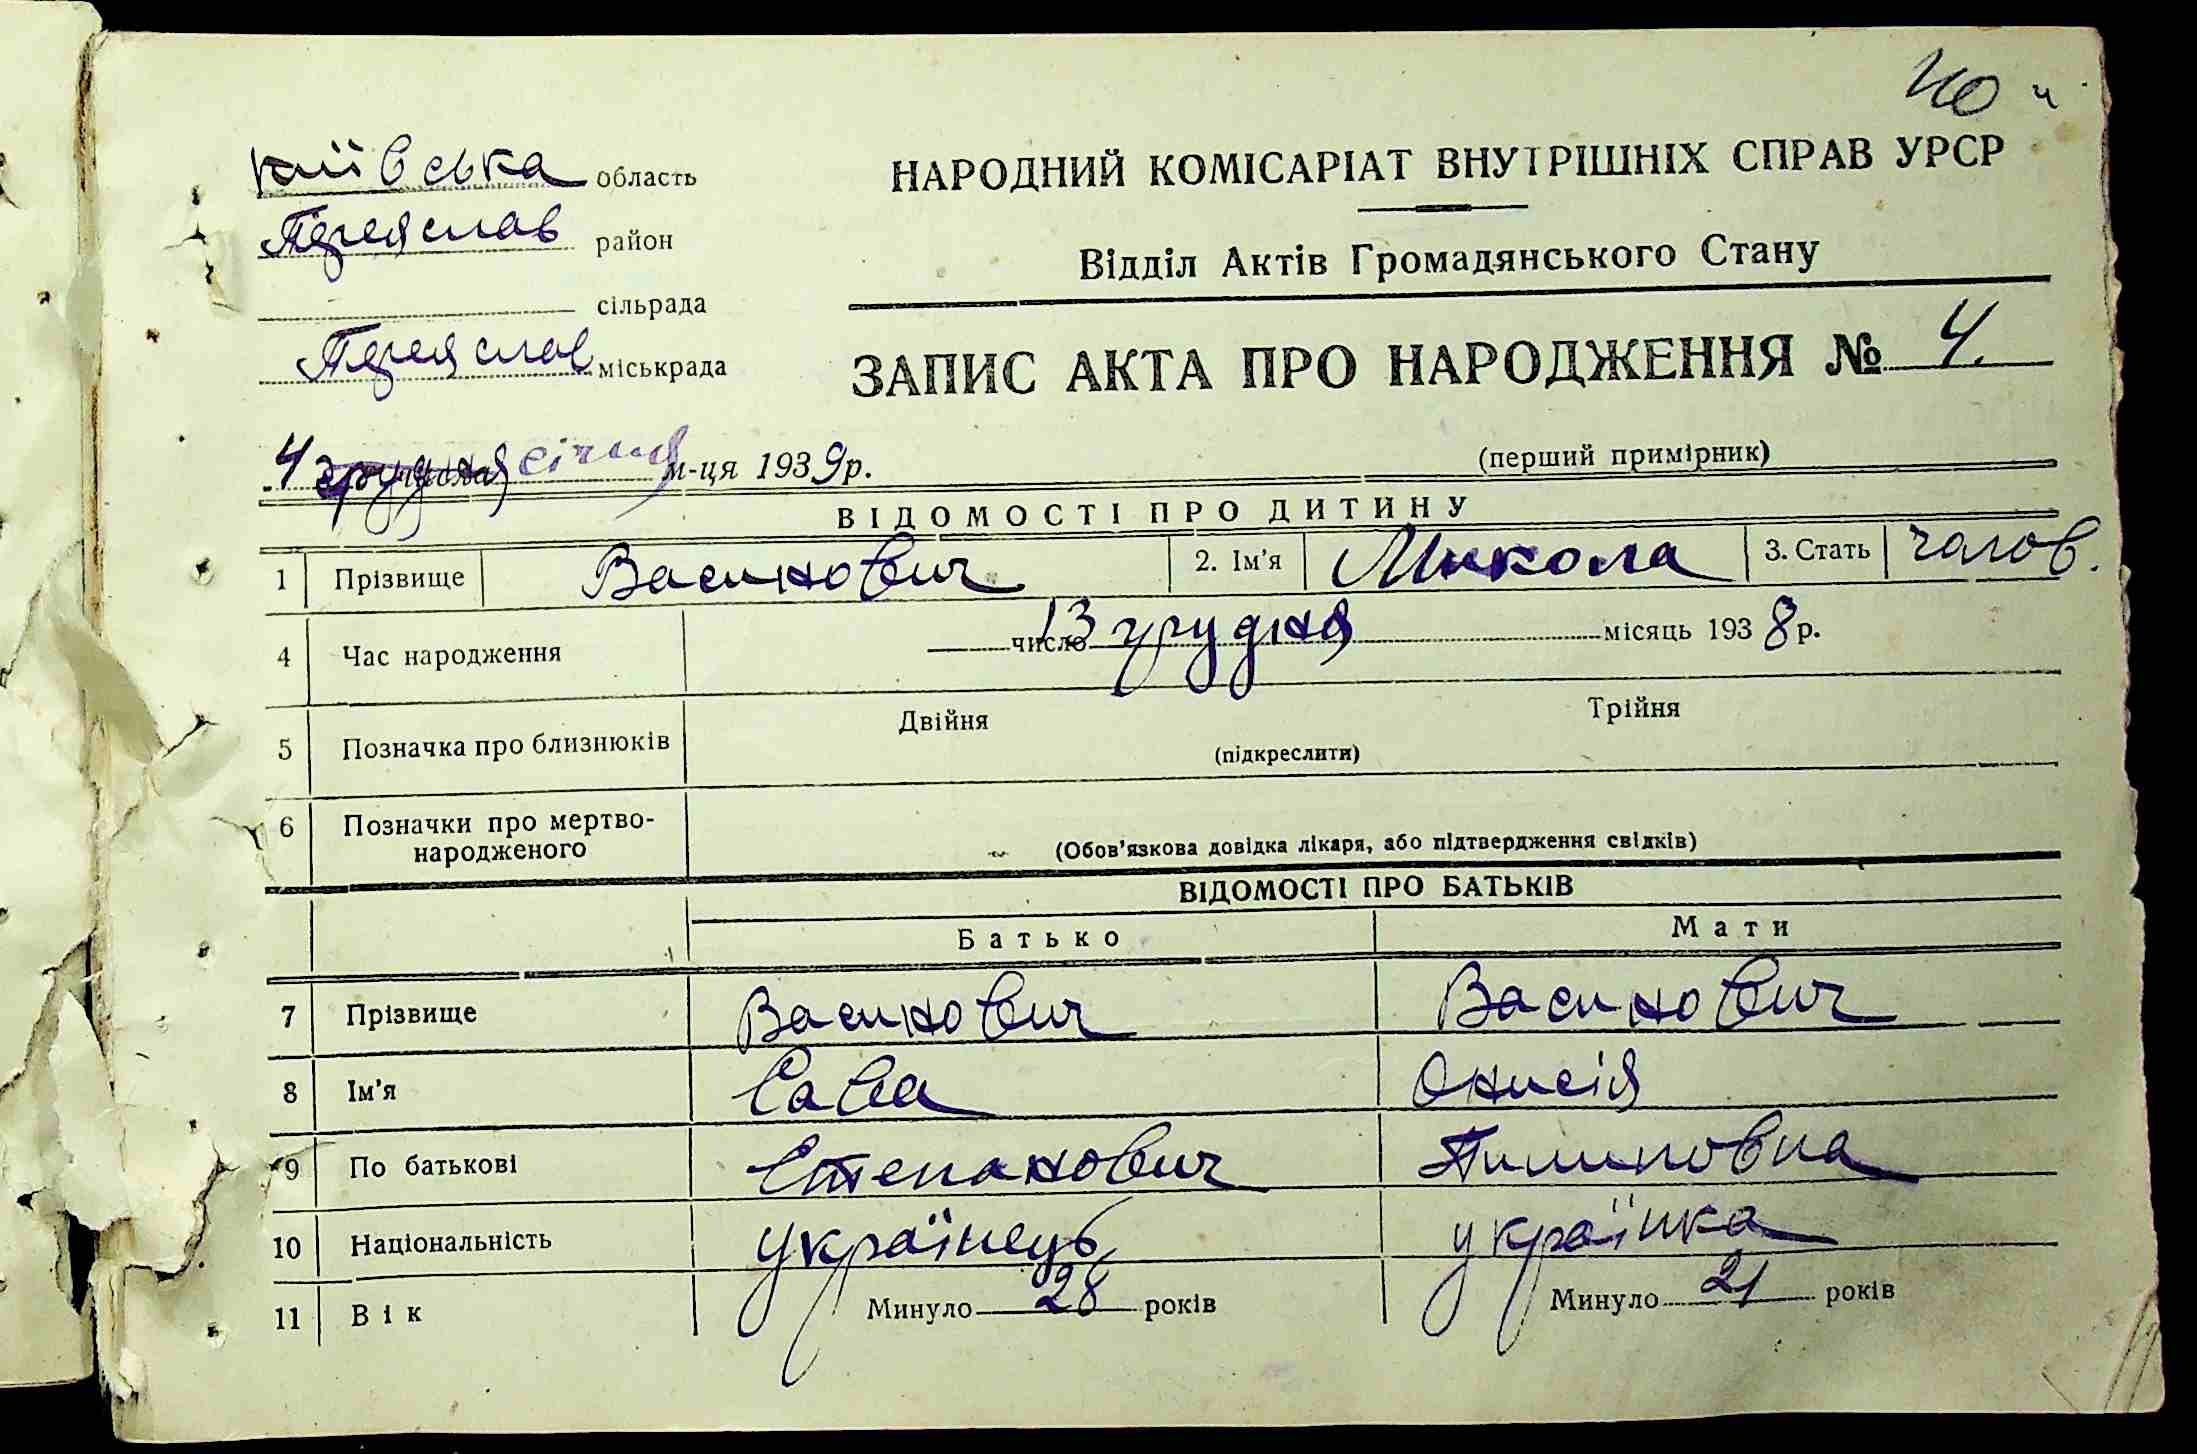 40
київська область
Переяслав район
сільрада
Переяслав міськрада
НАРОДНИЙ КОМІСАРІАТ ВНУТРІШНІХ СПРАВ УРСР
Відділ Актів Громадянського Стану
ЗАПИС АКТА ПРО НАРОДЖЕННЯ № 4.
(перший примірник)
4 грудня січня м-ця 1939 р.
ВІДОМОСТІ ПРО ДИТИНУ
1 Прізвище Васинович 2. Ім'я Микола 3. Стать чолов.
4 Час народження 13 число грудня місяць 1938 р.
5 Позначка про близнюків Двійня Трійня
(підкреслити)
6 Позначки про мертво-
народженого
(Обов'язкова довідка лікаря, або підтвердження свідків)
ВІДОМОСТІ ПРО БАТЬКІВ
Батько Мати
7 Прізвище Васинович Васинович
8 Ім'я Сава Онисія
9 По батькові Степанович Пилиповна
10 Національність українець українка
11 Вік Минуло 28 років Минуло 21 років